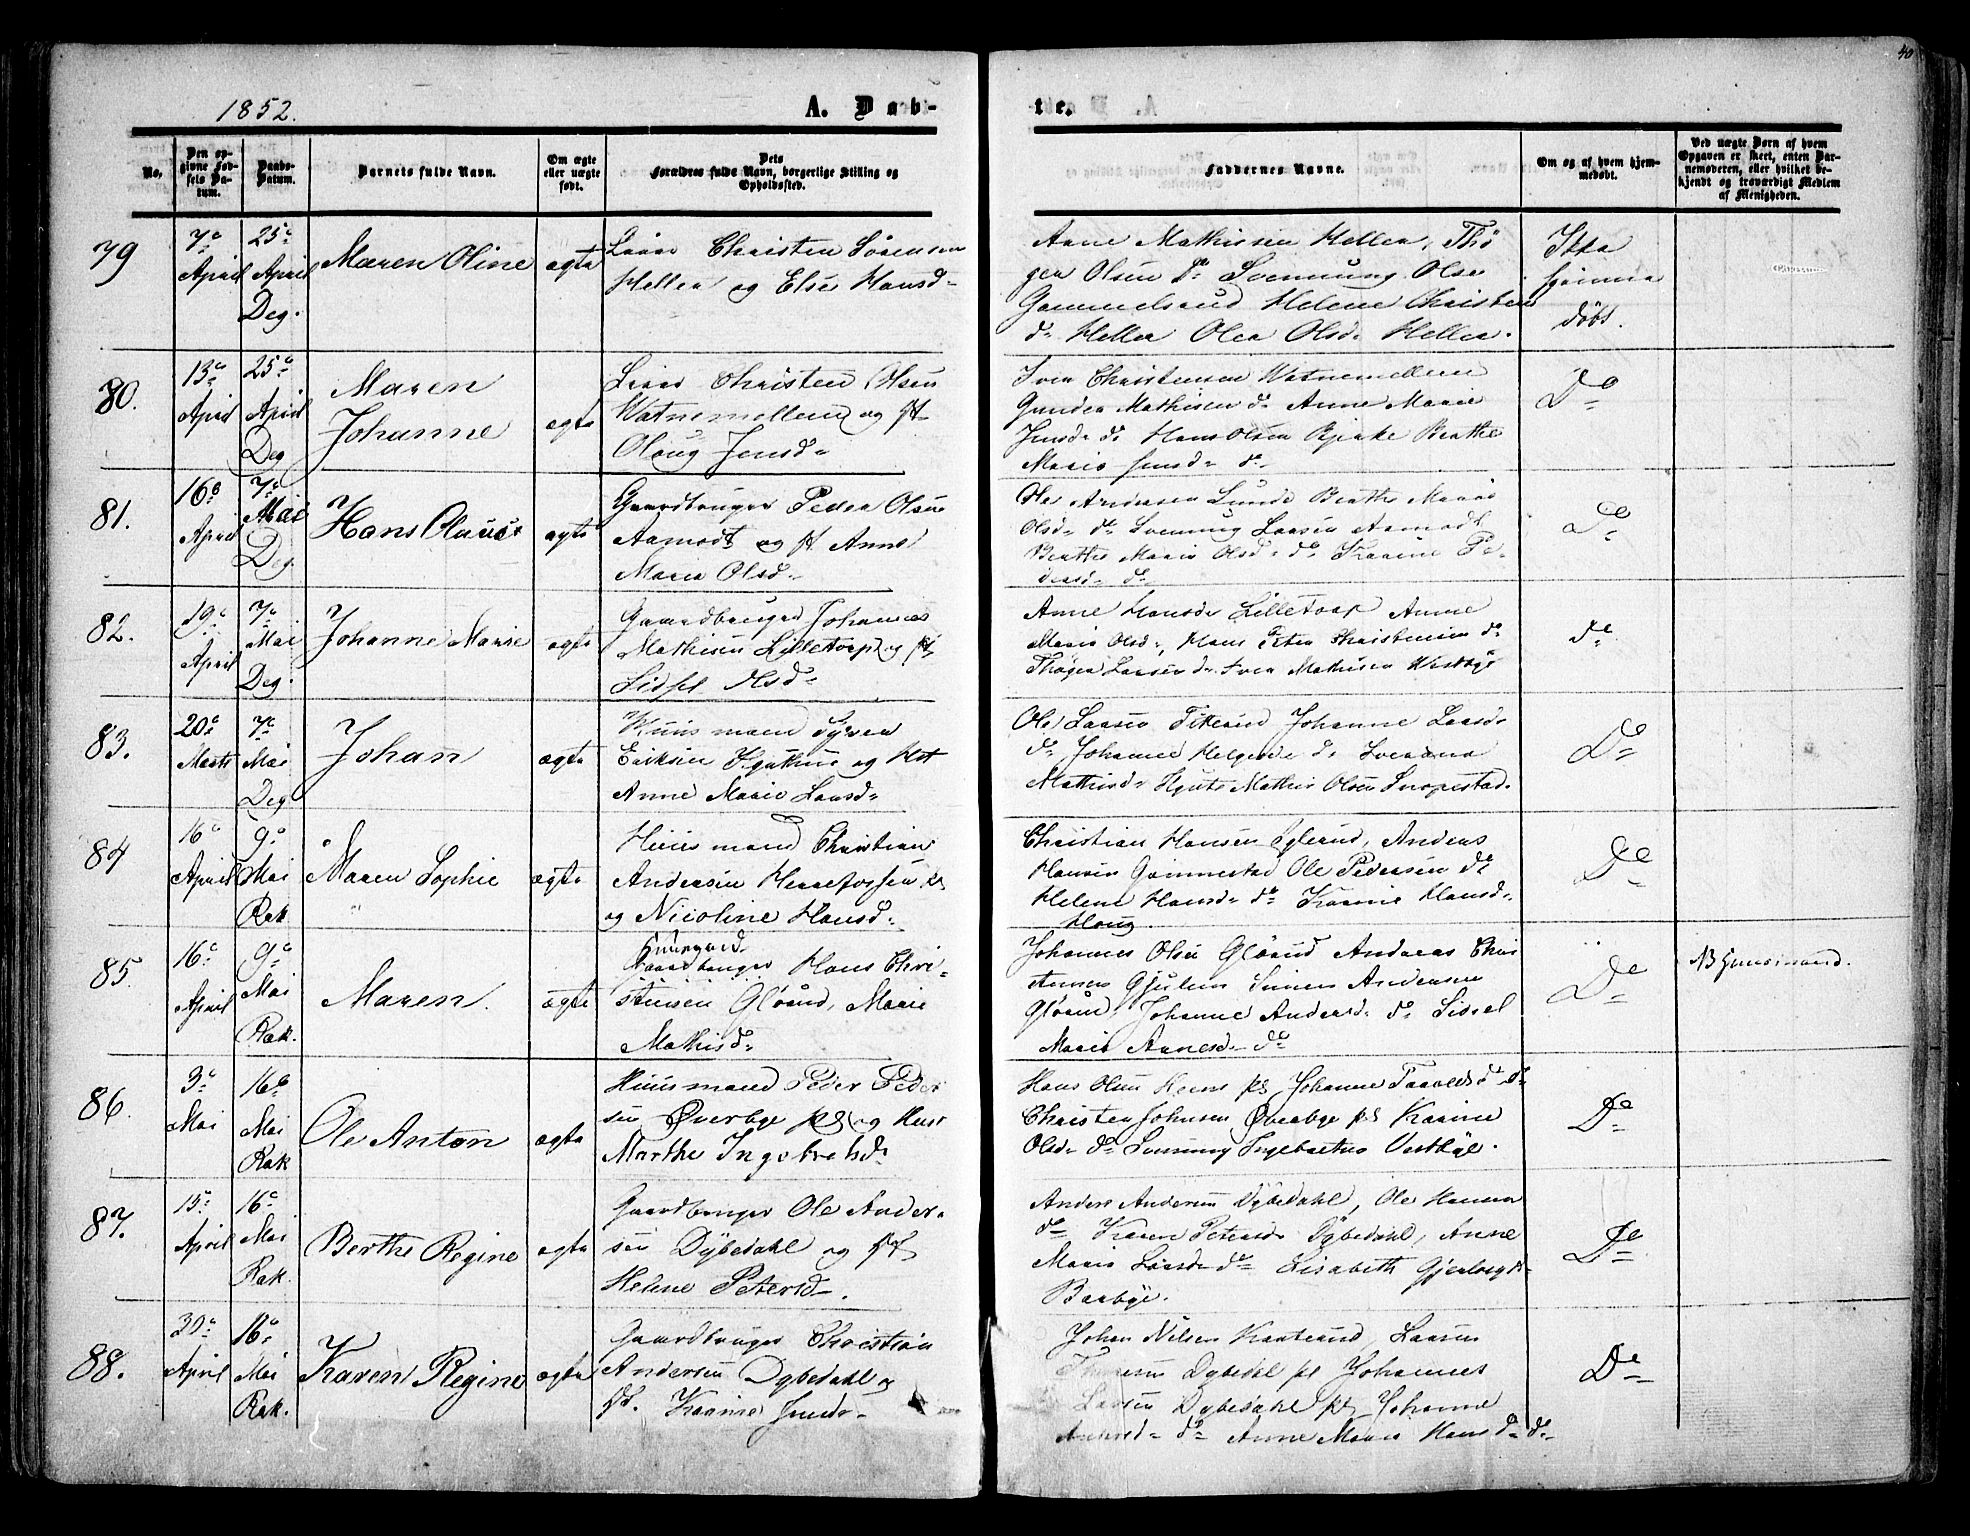 40
1852.
A. Døb-
te.
No.
Den op-
givne Fød-
sels Da-
tum.
Daabs-
Datum.
Barnets fulde Navn.
Om ægte
eller uægte
født.
Dets
Forældres fulde Navn, borgerlige Stilling og
Opholdssted.
Faddernes Navne.
Om og af hvem hjem-
medøbt.
Ved uægte Børn af hvem
Opgaven er skeet, enten Bar-
nemoderen, eller hvilket be-
kjendt og troværdigt Medlem
af Menigheden.
79
7de
April
25de
April
Deg.
Maren Oline
ægte
Christen Sørensen
Heller og Else Hansd-
Anne Mathisen Heller, Thø
ger Olsen do Svennung Olsen
Gammelsrud Helene Christens
d- Heller Olea Olsd- Heller.
Ikke
hjemme
døbt.
80.
13de
April
25de
April
Deg
Maren
Johanne
ægte
Christen Olsen
Watnemellem og H-
Oloug Jensd-
Iver Christensen Watnemellem
Gunder Mathisen do Anne Marie
Jensd- do Hans Olsen Berthe
Marie Jensd- do
Do
81.
16de
April
7de
Mai
Deg.
Hans Olaus
ægte
Gaardbruger Peder Olsen
Aamodt og H Anne
Marie Olsd-
Ole Andersen Lunde Berthe Marie
Olsd- do Svennung Larsen Aamodt
Berthe Marie Olsd- do Karine Pe-
dersd- do
Do
82.
19de
April
7de
Mai
Deg.
Johanne Marie
ægte
Gaardbruger Johannes
Mathisen Lilletorp og H
Sidsel Olsd-
Anne Hansd- Lilletorp Anne
Marie Olsd-, Hans Peter Christensen do
Thøger Larsen do Iver Mathisen Westbye
do
83.
20de
Marts
7de
Mai
Deg
Johan
ægte
Huusmand Syver
Eriksen og Hst
Anne Marie Larsd-
Ole Larsen Johanne Larsd-
do Johanne Helgesd- do
Mathisd- Mathis Olsen
Do
84
16de
April
9de
Mai
Rak.
Maren Sophie
ægte
Huusmand Christian
Andersen Herrefossen
og Nicoline Hansd-
Christian Hansen Anders
Hansen Ole Pedersen do
Helene Hansd- do Karine Hansd-
Houg.
Do
85.
16de
April
9de
Mai
Rak.
Maren.
ægte
Huusmand
Gaardbruger Hans Chri-
stensen Glørud, Marie
Mathisd-
Johannes Olsen Glørud Andreas Chris
Gjulem Simen Andersen
Glørud, Johanne Andersd- do Sidsel
Marie do
Do
NB Huusmand.
86.
3de
Mai
16de
Mai
Rak
Ole Anton
ægte
Huusmand Peder Peder
sen Øverbye og Hust
Marthe Ingebretsd-
Hans Olsen Johanne do
Christen Johnsen Øverbye Karine
Olsd- do Svennung Vestbye.
Do
87.
15de
April
16de
Mai
Rak.
Berthe Regine
ægte
Gaardbruger Ole Ander-
sen Dybedahl og
Helene Petersd-.
Anders Andersen Dybedahl, Ole Hansen
do Karen Petersd- Dybedahl, Anne
Marie Larsd- do Lisabeth
Barbye.
Do
88.
30de
April
16de
Mai
Rak.
Karen Regine
ægte
Gaardbruger Christian
Andersen Dybedahl og
Karine Jensd-
Johan Nilsen Larsen
Dybedal Johannes
Larsen Dybedahl Johanne
do Anne Marie Hansd- do
Do